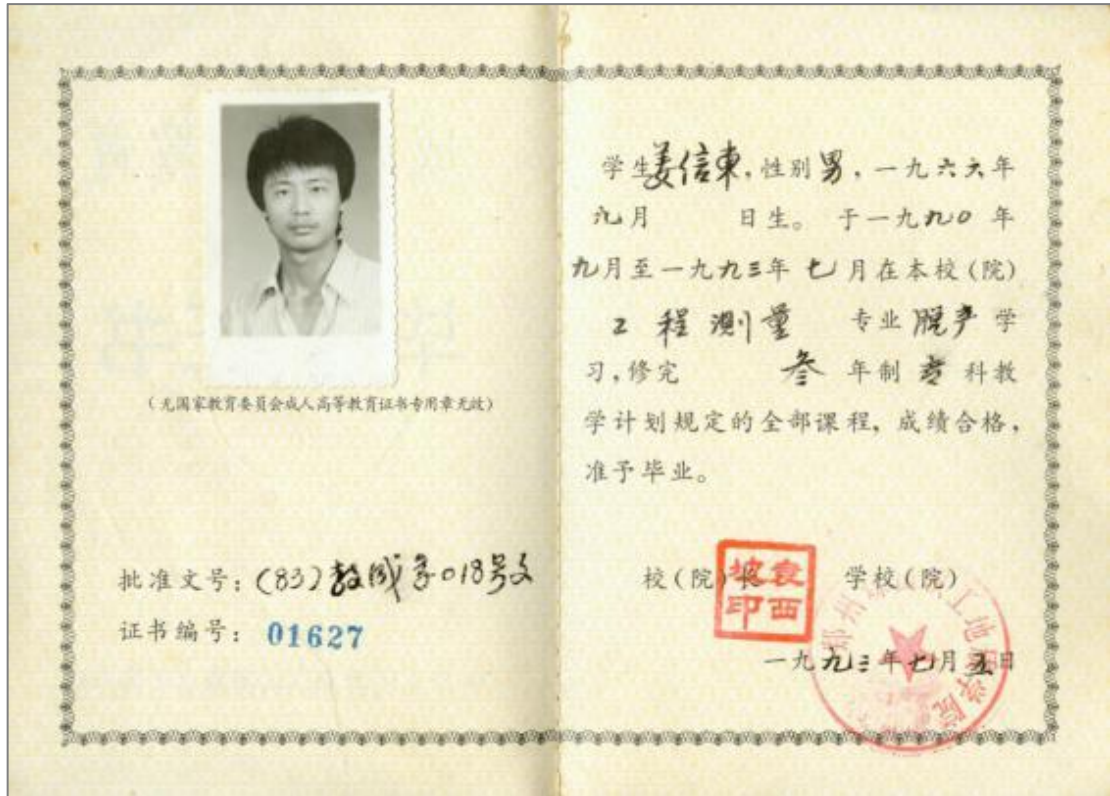 (无国家教育委员会成人高等教育证书专用章无效)
批准文号：(83)教成字018号文
证书编号：01627
学生姜信東，性别男，一九六六年
九月　日生。于一九九0年
九月至一九九三年七月在本校(院)
工程测量　专业脱产学
习，修完　叁年制专科教
学计划规定的全部课程，成绩合格，
准予毕业。
校(院)长　学校(院)
袁西坡印
一九九三年七月五日